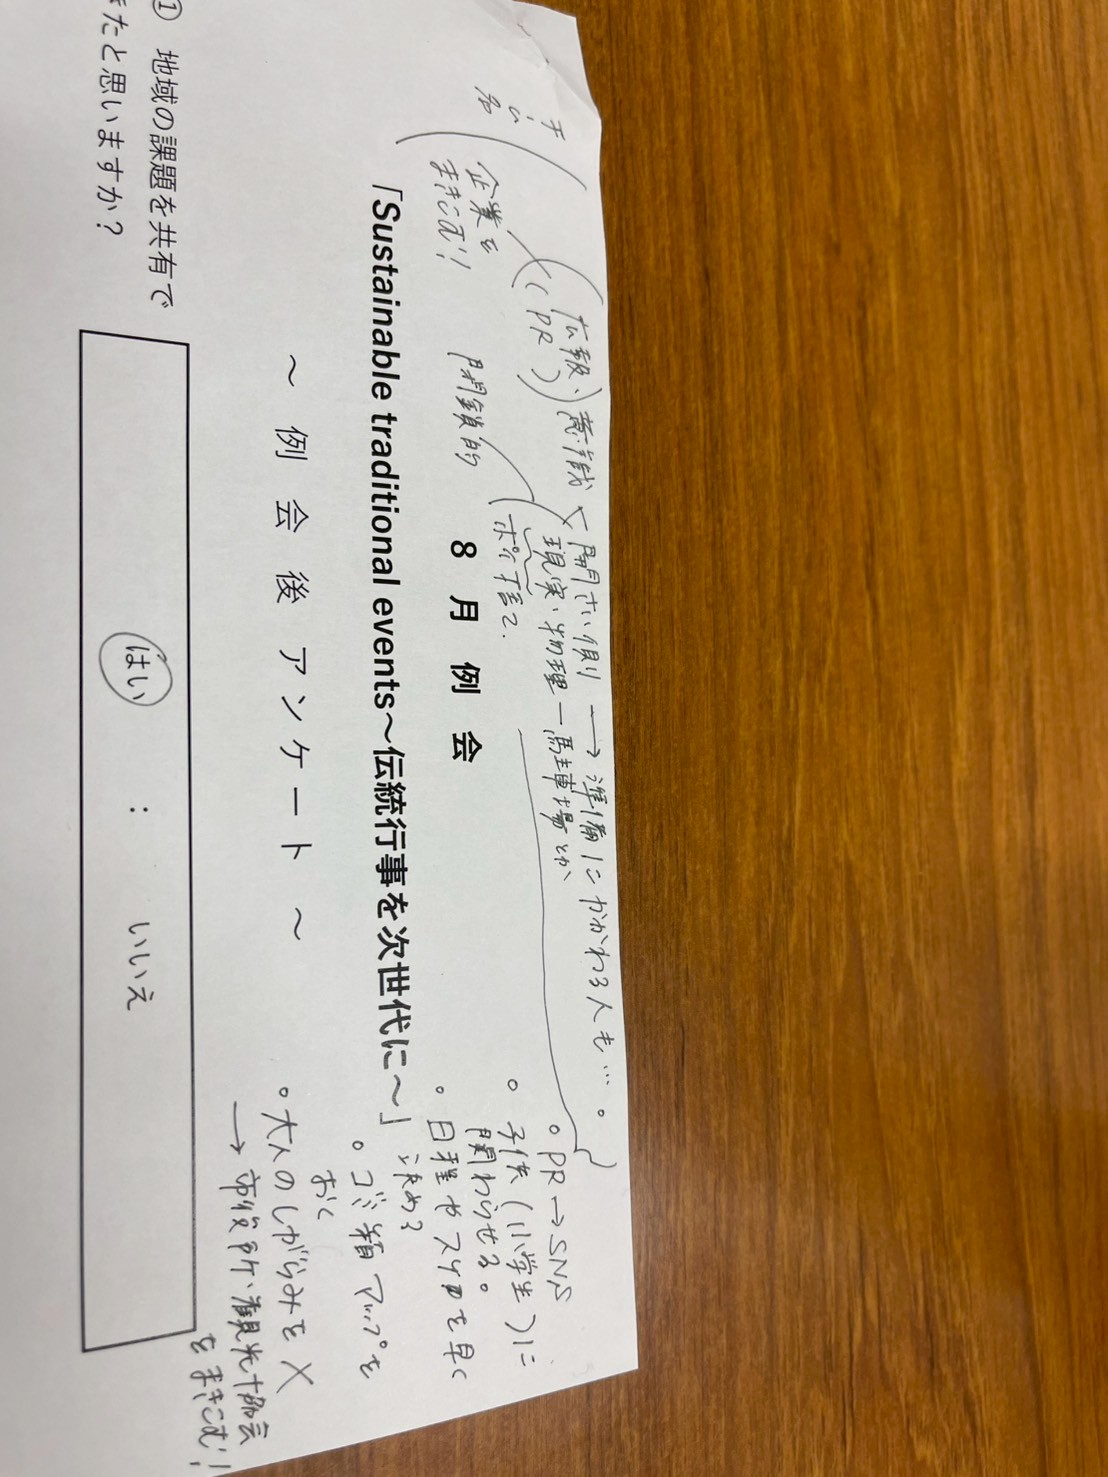 企業を
まきこむ!
広報、意識
(PR)
開さい側 → 準備にかかわる人も…。
現実・物理 ー 駐車場とか
閉鎖的
ポイ捨て.
8月例会
「Sustainable traditional events～伝統行事を次世代に～」
～ 例 会 後 ア ン ケ ー ト ～
。PR→SNS
。子供(小学生)に
関わらせる。
。日程やスケ日を早く
決める
。ゴミ箱マップを
おく
。大人のしがらみを✕
→市役所、観光協会
をまきこむ!
① 地域の課題を共有で
きたと思いますか?
はい : いいえ